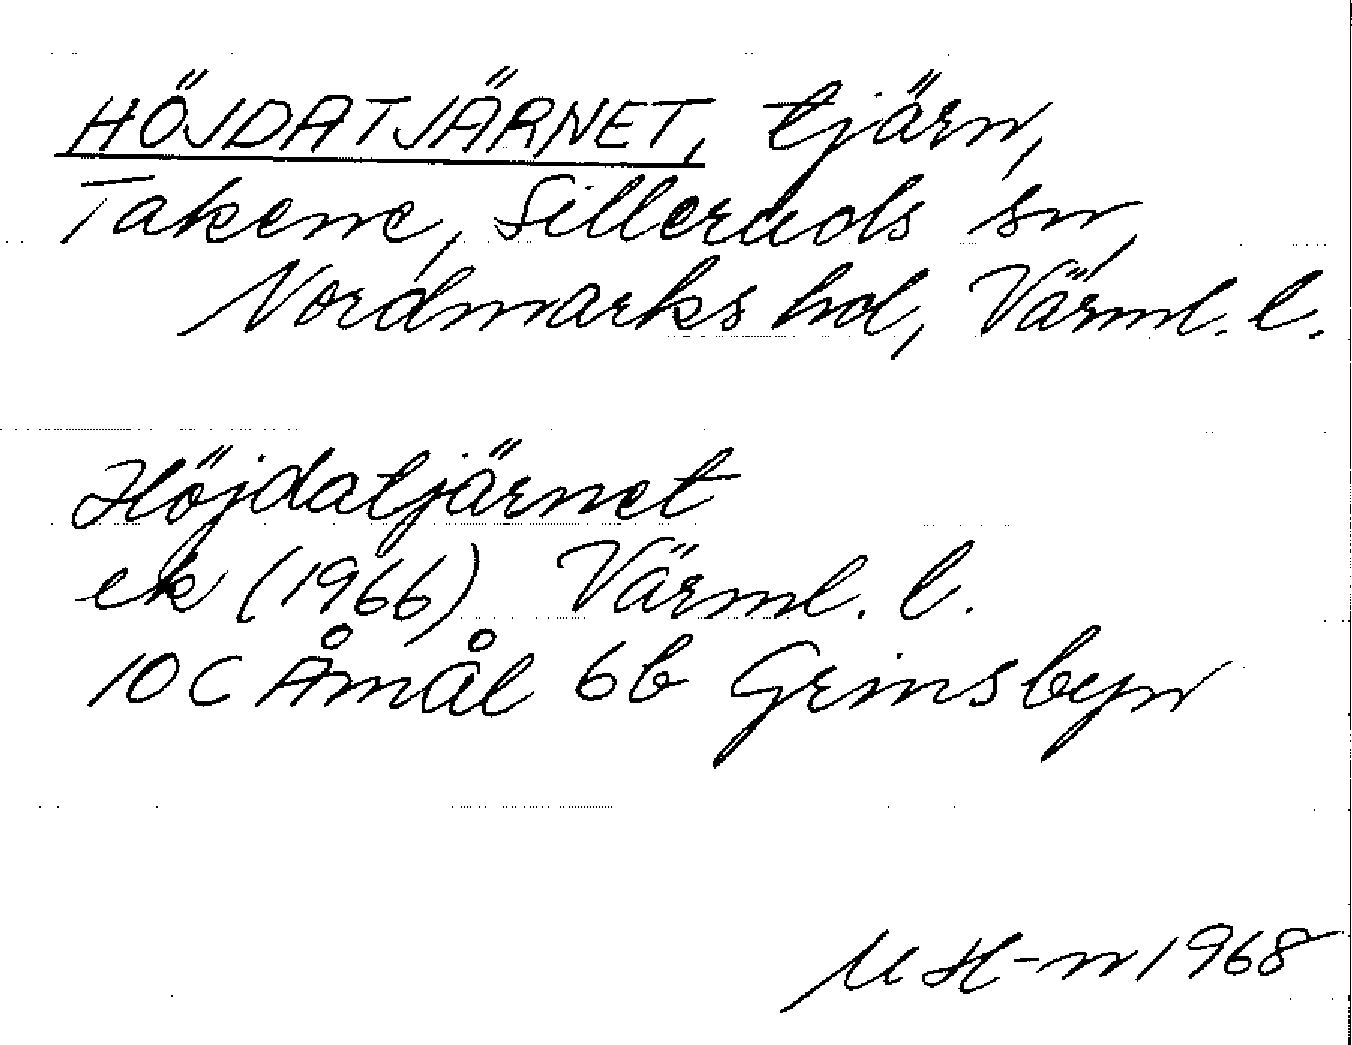 HÖJDATJÄRNET, tjärn,
Takene, Silleruds sn,
Nordmarks hd, Värml. l.
Höjdatjärnet
ek (1966) Värml. l.
10 C Åmål 6b Grinsbyn
M H-n 1968